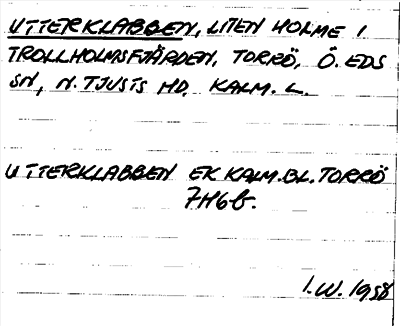 UTTERKLABBEN, LITEN HOLME I
TROLLHOLMSFJÄRDEN, TORRÖ, Ö. EDS
SN, N. TJUSTS HD. KALM. L.
UTTERKLABBEN EK KALM. BL. TORRÖ
7H6b.
I.W. 1958